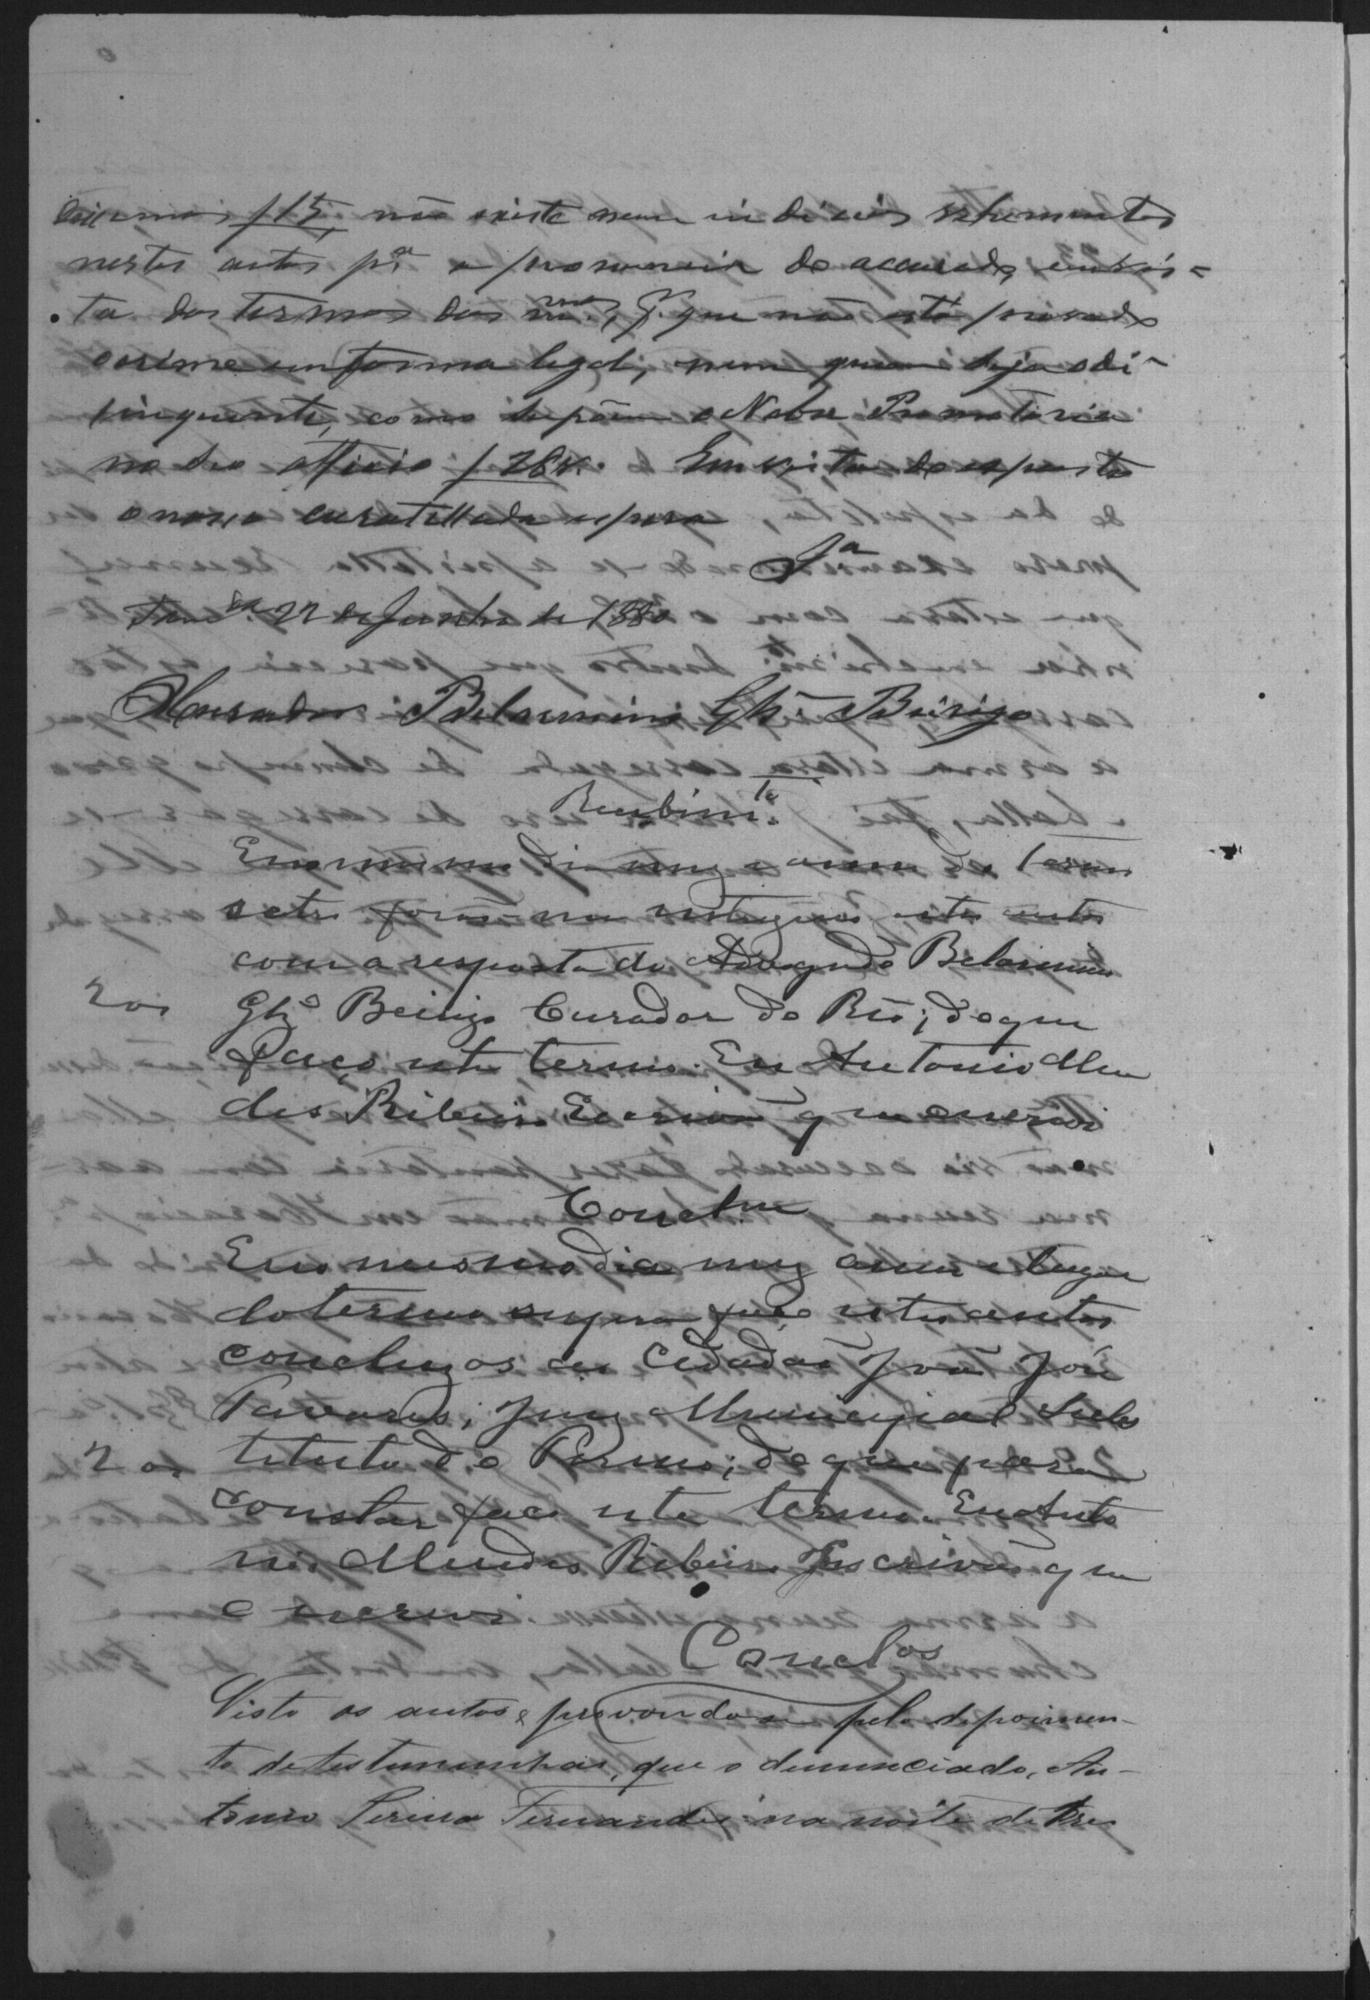 f 15, não existe nem indicios vehementes
nestes autos pª a pronuncia do accusado, em vis=
ta dos termos das que não está provado
o crime em forma legal, nem quem seja o de-
linquente, como o Nobre Promotoria
no seu officio f 28v. Em vista do exposto
o nosso curatellado espera
Jª
22 de Junho de 1880
O Curador Belarmino Glz Beirigo
Recebimto.
Em o mesmo dia mez e anno do
forão me entregues estes autos
com a resposta do Advogado Belarmino
200 Glz Beirigo Curador do Réo; do que
faço este termo. Eu Antonio Men
des Ribeiro Escrivão que escrevi
Conclm
Em o mesmo dia mez anno e lugar
do termo supra faço estes autos
concluzos ao Cidadão João José
Tavares, Juiz Municipal Subs
200 tituto do Termo; do que para
constar faço este termo. Eu Anto
nio Mendes Ribeiro Escrivão que
o escrevi
Conclos
Visto os autos e provando se pelo depoimen-
to de testemunhas, que o denunciado, An-
tonio Pereira Fernandes na noite de tres